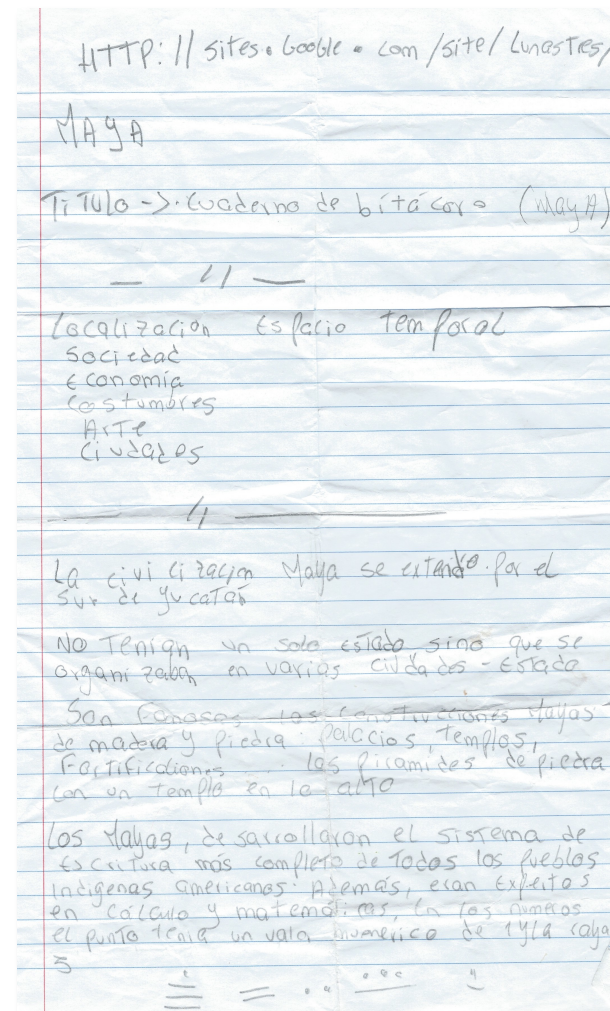 HTTP://sites.Google.com/site/Lunastres/
MAYA
TITULO ->. Cuaderno de bitácora (MayA)
— // —
Localización Espacio temporal
Sociedad
Economía
Costumbres
Arte
Ciudades
— // —
La civilización Maya se extendio por el
Sur de Yucatán
NO Tenían un solo Estado, sino que se
organizaban en varias ciudades-Estado
Son Famosas las construcciones Mayas
de madera y piedra: palacios, templos,
Fortificaciones ... las piramides de piedra
con un templo en lo alto
Los Mayas, desarrollaron el sistema de
Escritura más completo de Todos los pueblos
indígenas americanos. Además, eran Expertos
en cálculo y matemáticas, En los números
el punto tenía un valor numerico de 1 y la raya
5